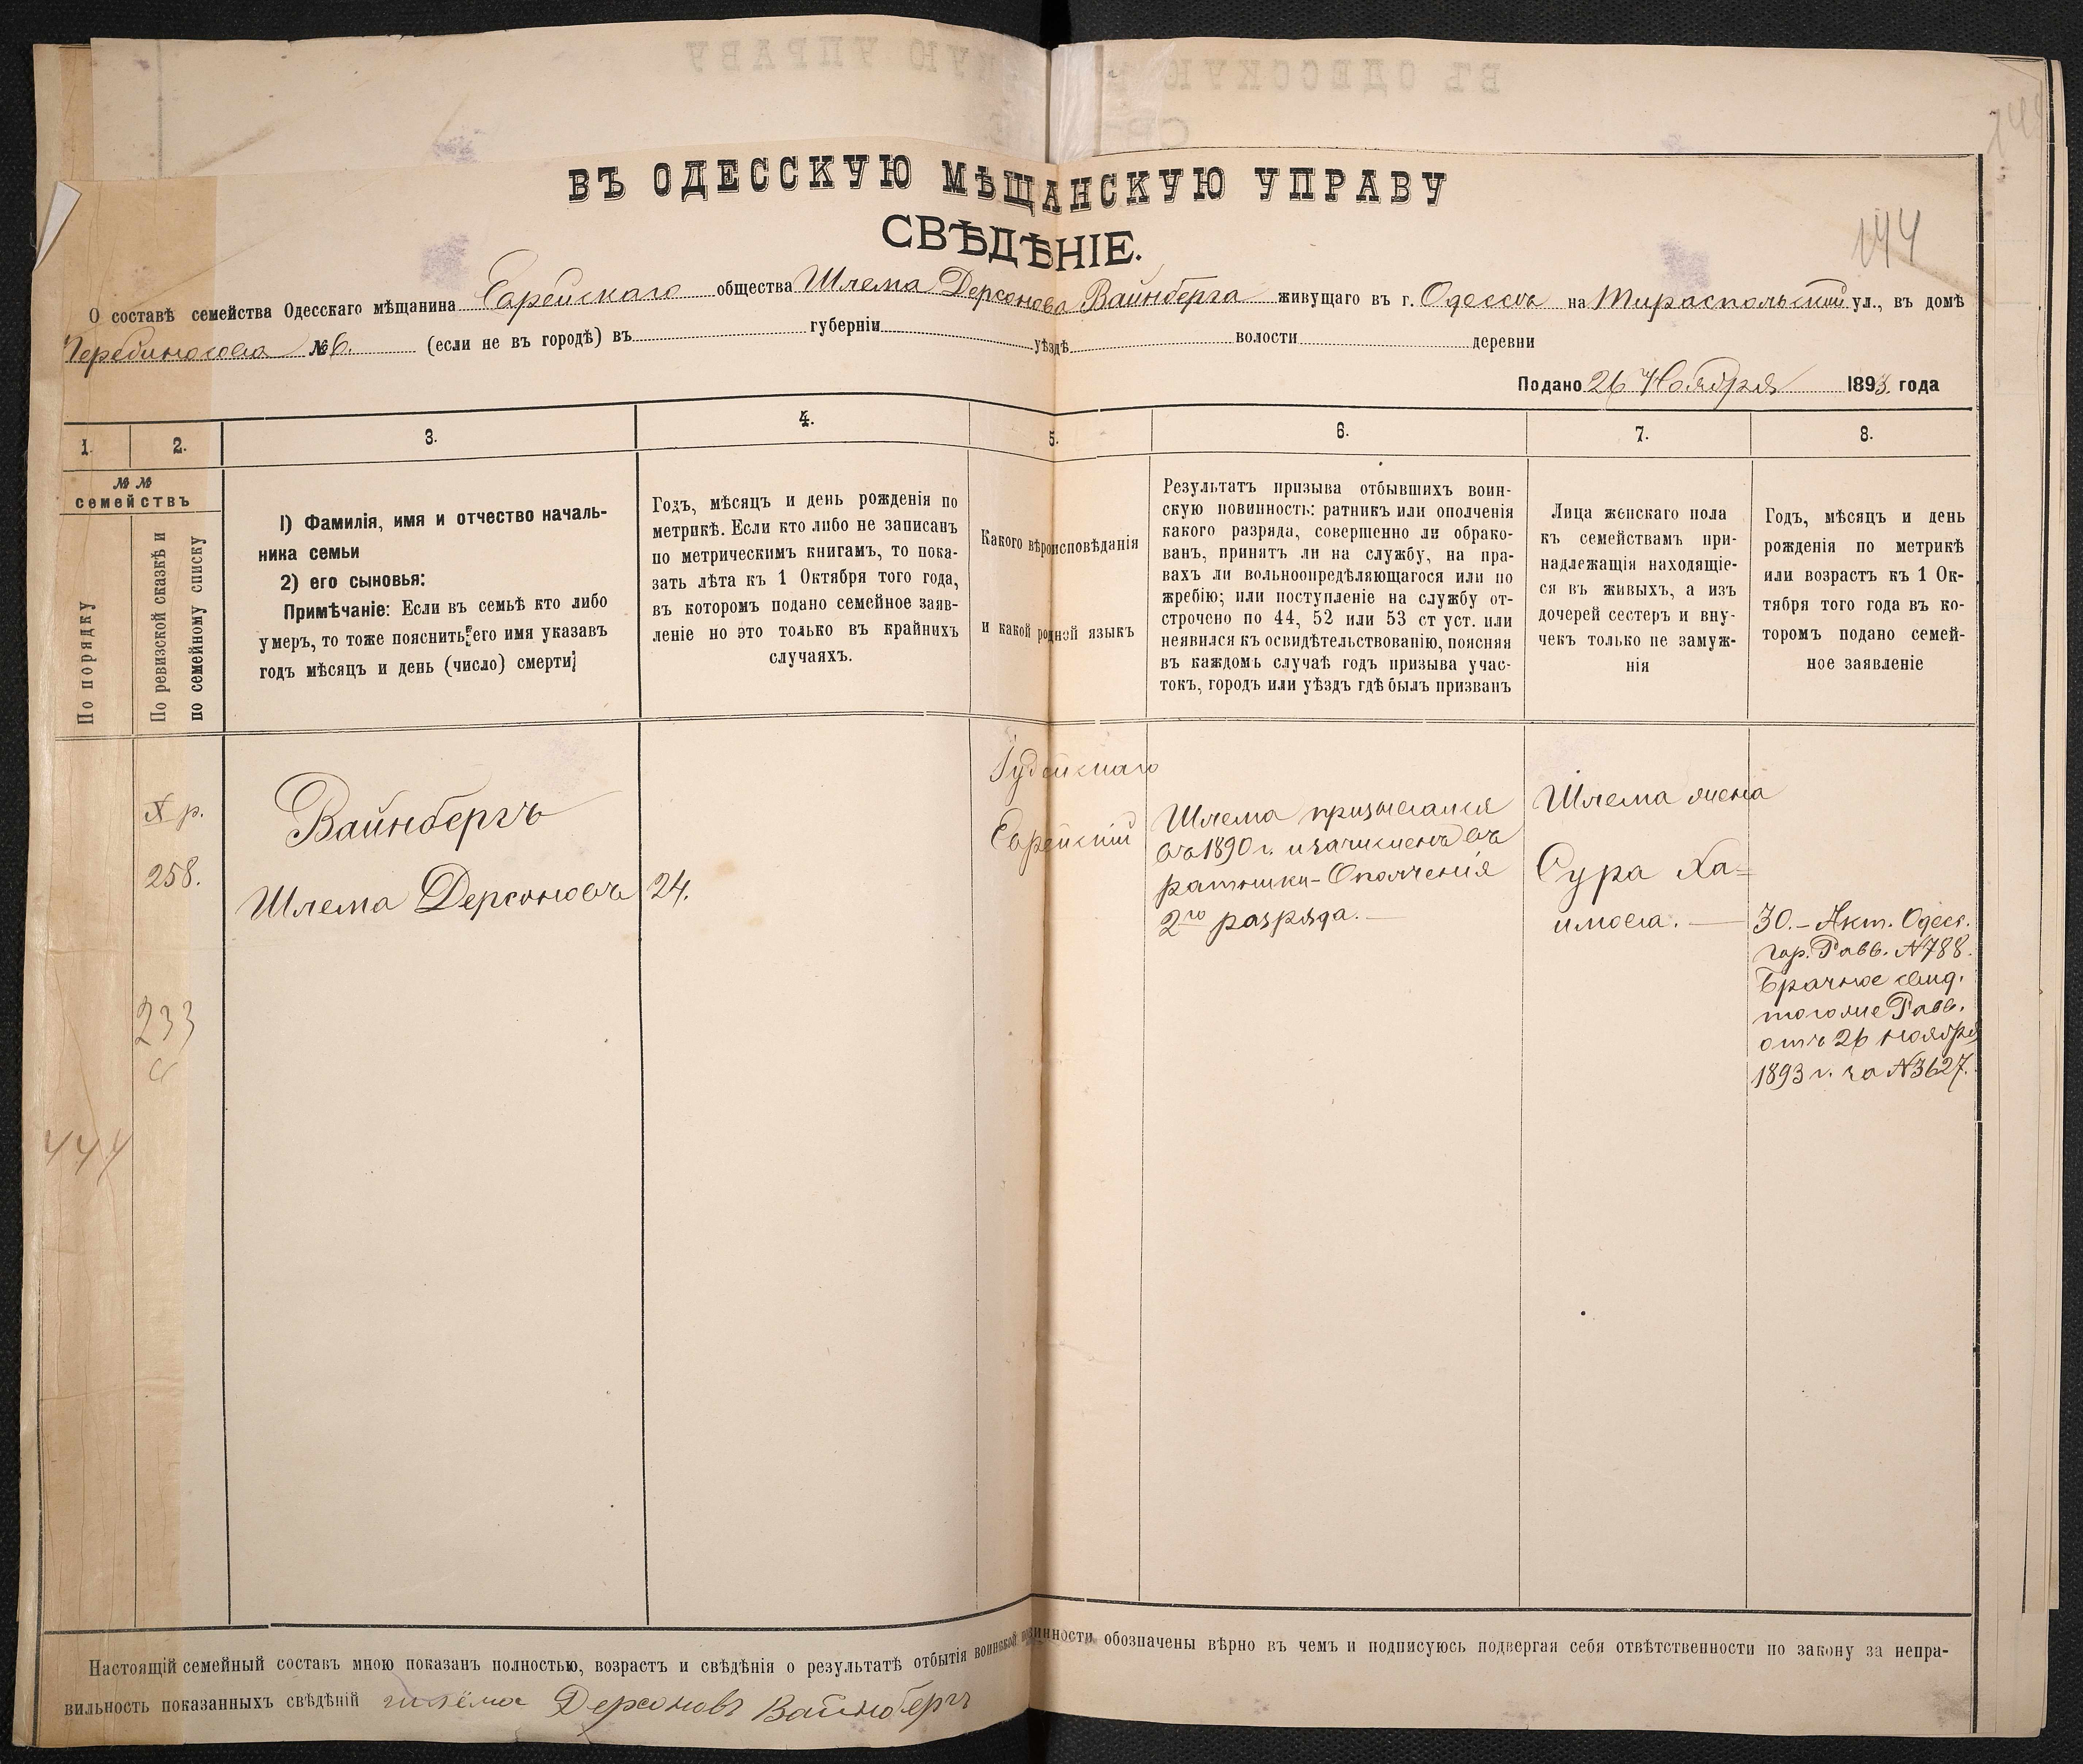 ВЪ ОДЕССКУЮ МѢЩАНСКУЮ УПРАВУ
СВѢДѢНІЕ.
144
О составѣ семейства Одесскаго мѣщанина Еврейскаго общества Шлема Дерсонова Вайнберга живущаго въ г. Одессѣ на Тираспольской ул., въ домѣ
№ 6. (если не въ городѣ) въ губерніи уѣздѣ волости деревни
Подано 26 Ноября 1893. года
1. 2. 3. 4. 5. 6. 7. 8.
№ №
семействъ
По порядку
По ревизской сказкѣ и
по семейному списку
1) Фамилія, имя и отчество началь-
ника семьи
2) его сыновья:
Примѣчаніе: Если въ семьѣ кто либо
умеръ, то тоже пояснить его имя указавъ
годъ мѣсяцъ и день (число) смерти;
Годъ, мѣсяцъ и день рожденія по
метрикѣ. Если кто либо не записанъ
по метрическимъ книгамъ, то пока-
зать лѣта къ 1 Октября того года,
въ которомъ подано семейное заяв-
леніе но это только въ крайнихъ
случаяхъ.
Какого вѣроисповѣданія
и какой родной языкъ
Результатъ призыва отбывшихъ воин-
скую повинность: ратникъ или ополченія
какого разряда, совершенно ли обрако-
ванъ, принятъ ли на службу, на пра-
вахъ ли вольноопредѣляющагося или по
жребію; или поступленіе на службу от-
строчено по 44, 52 или 53 ст уст. или
неявился къ освидѣтельствованію, поясняя
въ каждомъ случаѣ годъ призыва учас-
токъ, городъ или уѣздъ гдѣ былъ призванъ
Лица женскаго пола
къ семействамъ при-
надлежащія находящіе-
ся въ живыхъ, а изъ
дочерей сестеръ и вну-
чекъ только не замуж-
нія
Годъ, мѣсяцъ и день
рожденія по метрикѣ
или возрастъ къ 1 Ок-
тября того года въ ко-
торомъ подано семей-
ное заявленіе
X р.
258.
233
444
Вайнбергъ
Шлема Дерсоновъ
24.
Іудейскаго
Еврейскій
Шлема призывался
въ 1890 г. и зачисленъ въ
ратники-Ополченія
2го разряда. —
Шлема жена
Сура Ха=
имова. —
30. – Акт. Одесс.
гор. Равв. №788.
Брачное свид.
тогоже Равв.
отъ 26 ноября
1893 г. за №3627.
Настоящій семейный составъ мною показанъ полностью, возрастъ и свѣдѣнія о результатѣ отбытія воинской повинности обозначены вѣрно въ чемъ и подписуюсь подвергая себя отвѣтственности по закону за непра-
вильность показанныхъ свѣдѣній шлёма Дерсоновъ Вайнбергъ